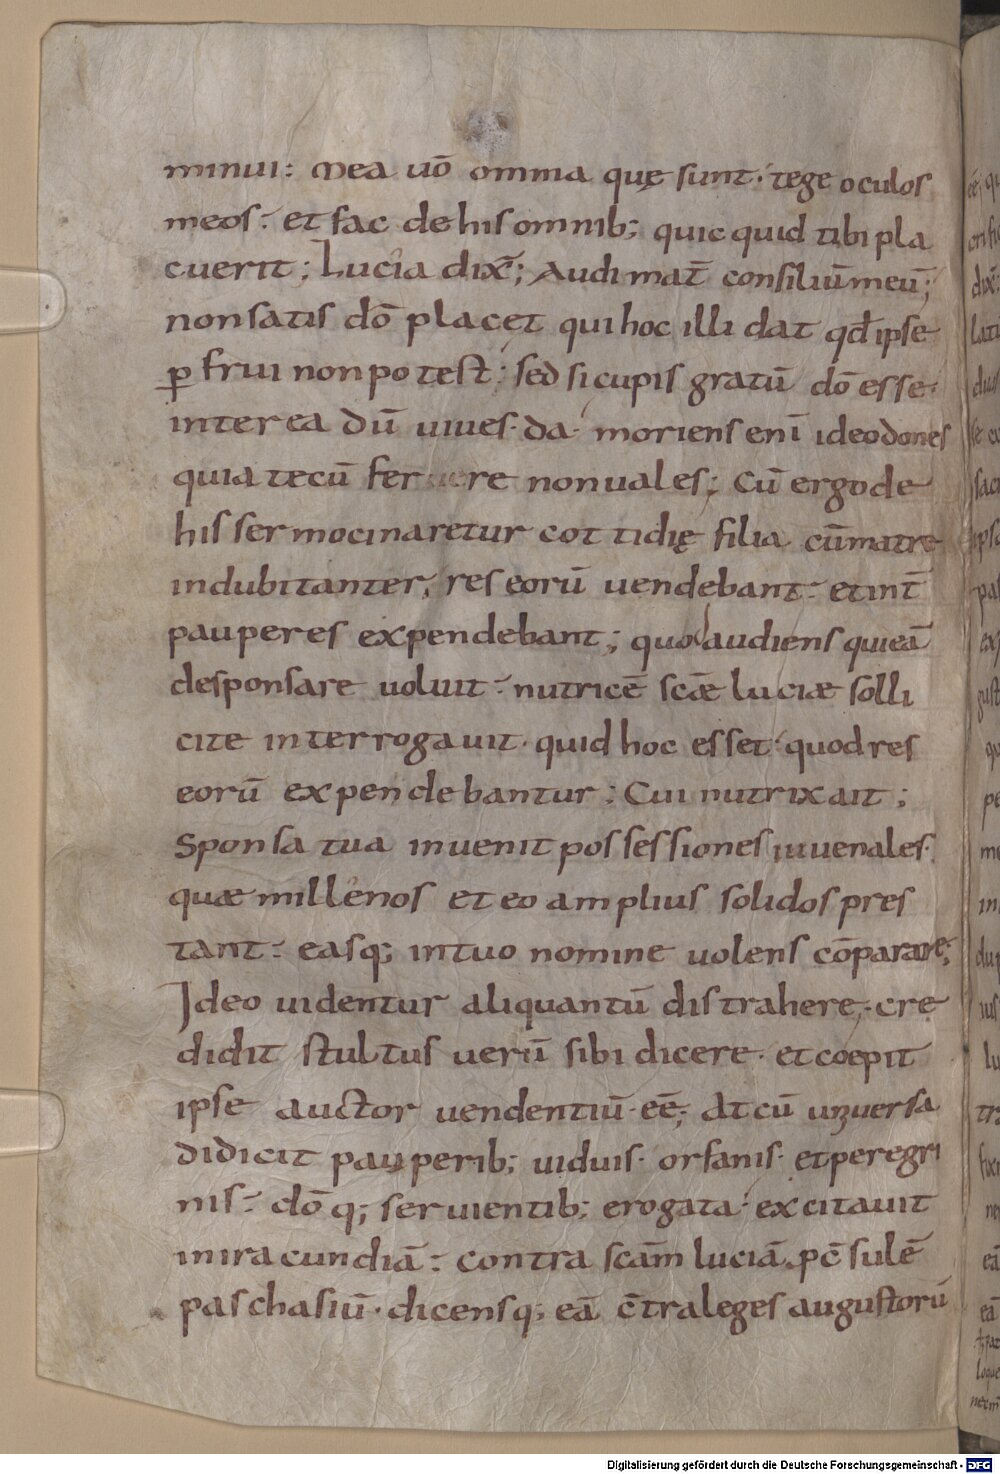 minui: Mea uō omnia quę sunt· tege oculos
meos· et fac de his omnib; quic quid tibi pla
cuerit; Lucia dix̄; Audi mat̄ consiliū meū;
non satis dō placet qui hoc illi dat qđ ipse
ꝑ frui non potest; sed si cupis gratū dō esse·
interea dū uiues· da· moriens enī ideo dones
quia tecū ferre non uales; Cū ergo de
his sermocinaretur cottidię filia cū matre
indubitanter; res eorū uendebant· et int̄
pauperes expendebant; quod audiens qui eā
desponsare uoluit· nutricē scǣ luciæ solli
cite interrogauit· quid hoc esset· quod res
eorū expendebantur; Cui nutrix ait;
Sponsa tua inuenit possessiones iuuenales·
quæ millenos et eo amplius solidos pres
tant· easq; in tuo nomine uolens cōparare;
Ideo uidentur aliquantū distrahere· cre
didit stultus uerū sibi dicere· et coepit
ipse auctor uendentiū eē; At cū uniuersa
didicit pauperib; uiduis· orfanis· et peregri
nis· dōq; seruientib; erogata· excitauit
in iracundiā· contra scām luciā pc̄sulē
paschasiū· dicensq; eā c̄tra leges augustorū
Digitalisierung gefördert durch die Deutsche Forschungsgemeinschaft - DFG